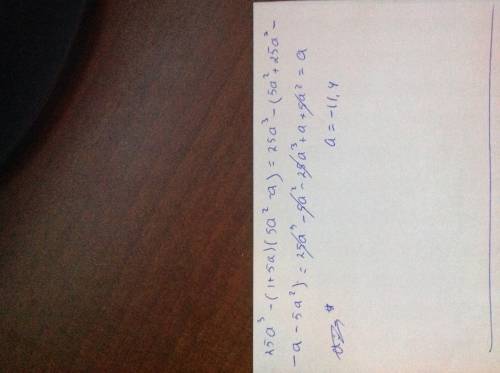 25a³ - (1+5a)(5a² - a) = 25a³ - (5a² + 25a³ -
- a - 5a²) = 25a³ - 5a² - 25a³ + a + 5a² = a
a = -11,4